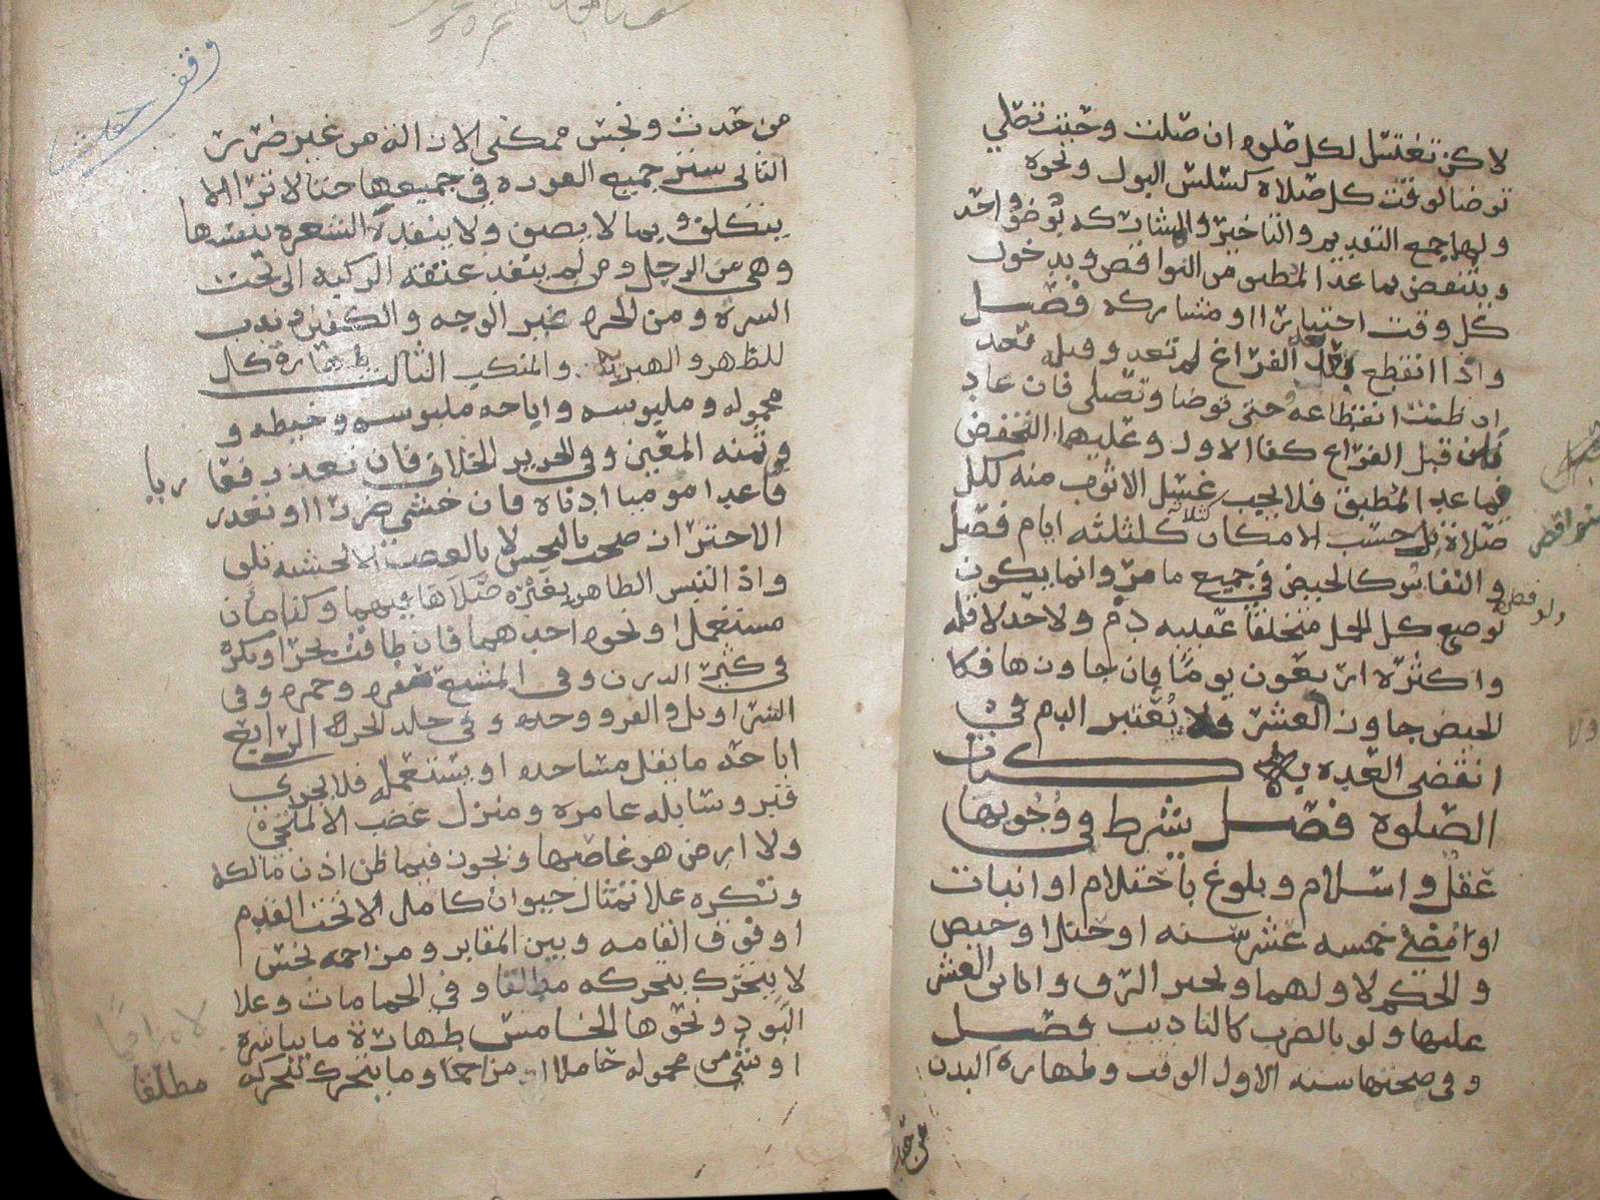 لا كن تغتسل لكل صلوه ان صلت وحيث تصلي
توضا لوقت كل صلاة كسلس البول ونحوه
ولهما جمع التقديم والتاخير والمشاركه بوضؤ واحد
وينتقض بما عدا المطبق من النواقض وبدخول
كل وقت اختيارا او مشاركه فصل
واذا انقطع بعد الفراغ لم تعد وقبله تعد
ان ظنت انقطاعه حتى توضا وتصلى فان عاد
قبل الفراغ كفا الاول وعليهما التحفض
فيما عدا المطبق فلا يجب غسل الاثوب منه لكل
صلاة بل حسب الامكان كثلاثه ايام فصل
والنفاس كالحيض في جميع ما مر وانما يكون
بوضع كل الحمل متخلقا عقيبه دم ولا حد لاقله
واكثره اربعون يوما فان جاوزها فكا
لحيض جاوز العشر ولا يعتبر الدم في
انقضى العده به كتاب
الصلوة فصل يشرط في وجوبها
عقل واسلام وبلوغ باحتلام او انبات
او مضي خمسه عشر سنه او حبلا او حيض
والحكم لاولهما ويجبر الرق وابن العشر
عليها ولو بالضرب كالتاديب فصل
وفي صحتها سته الاول الوقت وطهارة البدن
نواقض
ولو
من حدث ونجس ممكني الازاله من غير ضرر
الثاني ستر جميع العوره في جميعها حتا لا ترا الا
بتكلف وبما لا يصف ولا ينفذه الشعره بنفسها
وهي من الرجل ومن لم ينفذ عتقه الركبه الى تحت
السره ومن الحره غير الوجه والكفين وندب
للظهر والهبريه والمنكب الثالث طهارة كل
محموله وملبوسه واباحه ملبوسه وخيطه و
وثمنه المعين وفي الحرير الخلاف فان تعذر فعا ريا
قاعدا موميا ادناه فان خشي ضررا او تعذر
الاحتراز صحت بالنجس لا بالغصب الا لخشيه تلف
واذا التبس الطاهر بغيره صلاها فيهما وكذا ماان
مستعمل او نحوه احدهما فان ضاقت تحرا وتكره
في كثير الدرن وفي المشبع صفره وحمره وفي
السراويل والفرو وحده وفي جلد الخز الرابع
اباحه ما يقل مساجده او يستعمله فلا يجزي
قبر وسابله عامره ومنزل غصب الا لملجئ
ولا ارض هو غاصبها ويجوز فيما ظن اذن مالكه
وتكره علا تمثال حيوان كامل الا تحت القدم
او فوق القامه وبين المقابر ومزاحمه نجس
لا يتحرك بتحركه مطلقا وفي الحمامات وعلا
اللبود ونحوها الخامس طهارة ما يباشره
او شئ من محموله حاملا لا مزاحما وما يتحرك بتحركه
مطلقا
لا مزاحما
وقف